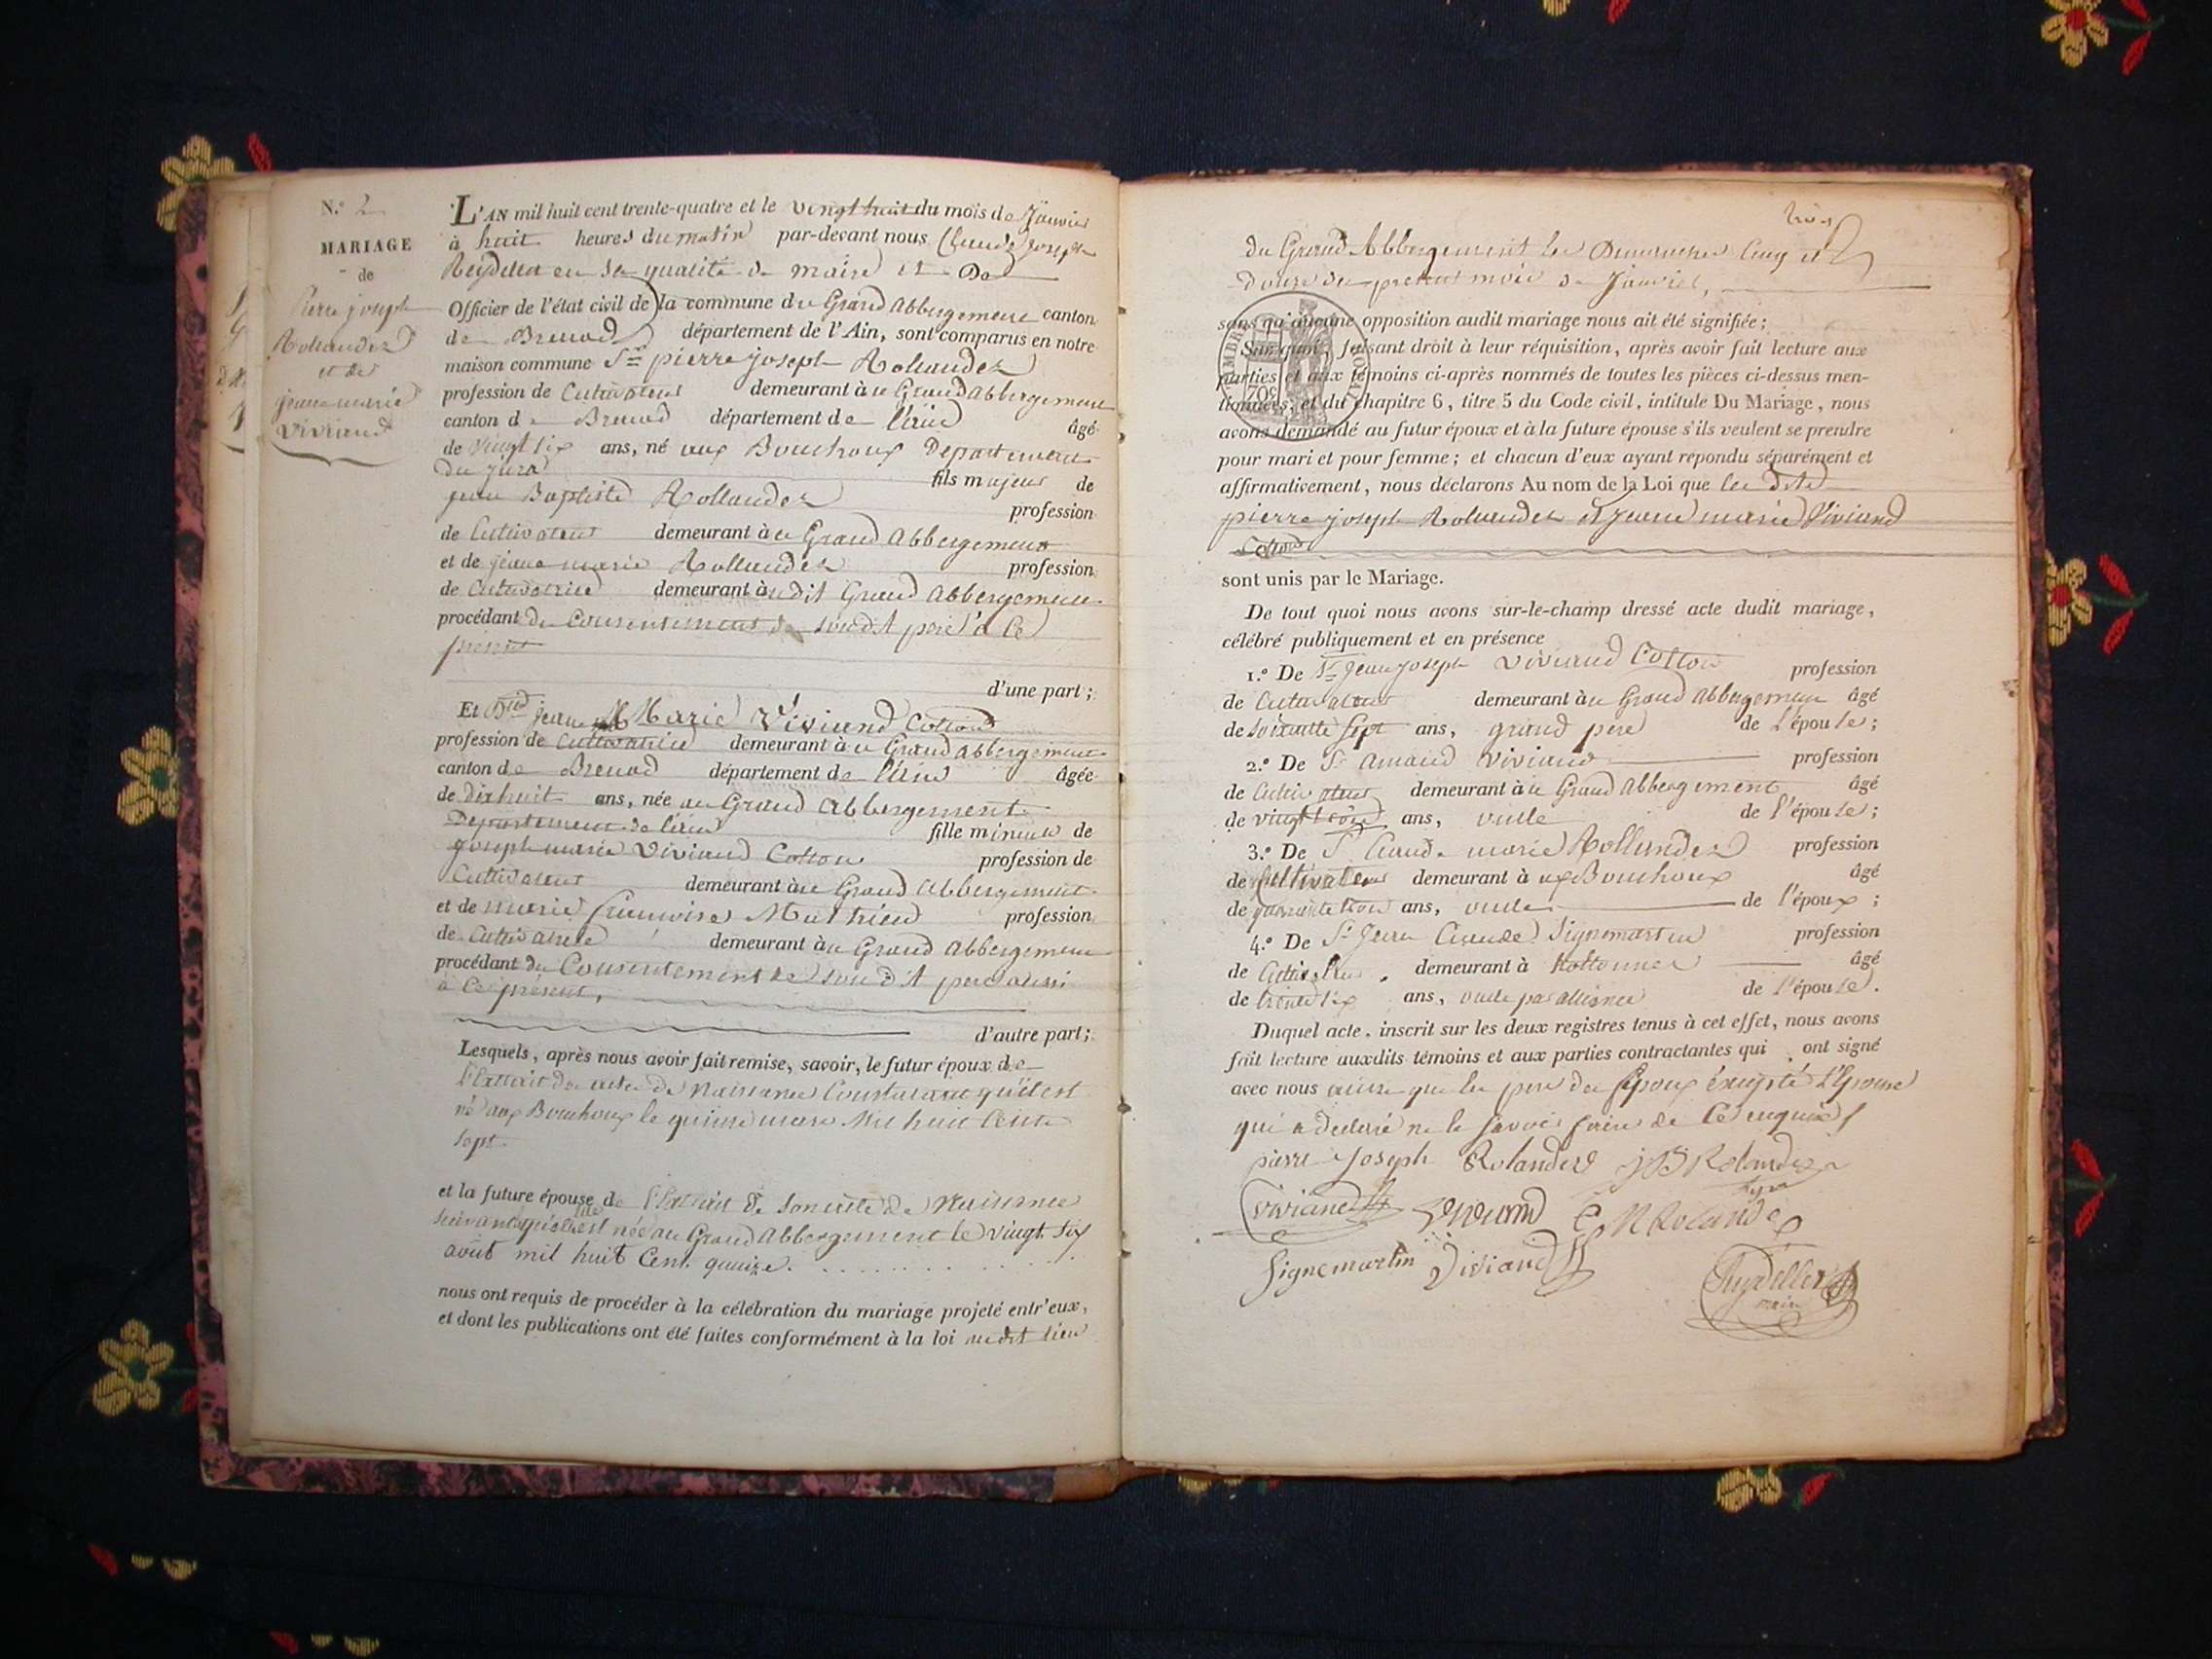 N.º 2
MARIAGE
de
Pierre joseph
Rollandez
et de
jeanne marie
Viviand
L'AN mil huit cent trente-quatre et le vingt huit du mois de Janvier
à huit heures du matin par-devant nous Claude Joseph
Reydellet en sa qualité de maire et De
Officier de l'état civil de la commune du Grand Abbergement canton
de Brenod département de l'Ain, sont comparus en notre
maison commune Sr pierre joseph Rollandez
profession de Cultivateur demeurant à u Grand Abbergement
canton de Brenod département de l'ain âgé
de vingt six ans, né aux Bouchoux Departement
Du jura fils majeur de
jean Baptiste Rollandez profession
de Cultivateur demeurant à u Grand Abbergement
et de jeanne marie Rollandez profession
de Cultivatrice demeurant à udit Grand Abbergement
procédant du Consentement de sondit père à Ce
présent
d'une part;
Et Dlle jeanne Marie Viviand Cotton
profession de Cultivatrice demeurant à u Grand Abbergement
canton de Brenod département de l'ain âgée
de dix huit ans, née au Grand Abbergement
Departement de l'ain fille mineur de
joseph marie Viviand Cotton profession de
Cultivateur demeurant à u Grand Abbergement
et de marie françoise Mathieu profession
de Cultivatrice demeurant à u Grand Abbergement
procédant du Consentement de sondit père aussi
à Ce présent,
d'autre part;
Lesquels, après nous avoir fait remise, savoir, le futur époux de
l'Extrait de acte de Naissance Constatant qu'il est
né aux Bouchoux le quinze mars Mil huit Cent
sept
et la future épouse de l'Extrait de son acte de Naissance
suivant lequel elle est née au Grand Abbergement le vingt six
août mil huit Cent quinze.
nous ont requis de procéder à la célébration du mariage projeté entr'eux,
et dont les publications ont été faites conformément à la loi audit lieu
trois
du Grand Abbergement les Dimanches Cinq et
Douze du présent mois de Janvier,
TIMBRE
sans qu'aucune opposition audit mariage nous ait été signifiée;
Sur quoi, faisant droit à leur réquisition, après avoir fait lecture aux
parties et aux témoins ci-après nommés de toutes les pièces ci-dessus men-
tionnées, et du chapitre 6, titre 5 du Code civil, intitule Du Mariage, nous
avons demandé au futur époux et à la future épouse s'ils veulent se prendre
pour mari et pour femme; et chacun d'eux ayant répondu séparément et
affirmativement, nous déclarons Au nom de la Loi que les dits
pierre joseph Rolandez et Jeanne marie Viviand
Cotton
sont unis par le Mariage.
De tout quoi nous avons sur-le-champ dressé acte dudit mariage,
célébré publiquement et en présence
1.º De Sr Jean joseph Viviand Cotton profession
de Cultivateur demeurant à u Grand Abbergement âgé
de soixante sept ans, grand père de l'épouse;
2.º De Sr Amand Viviand profession
de Cultivateur demeurant à u Grand Abbergement âgé
de vingt trois ans, oncle de l'épouse;
3.º De Sr Claude marie Rollandez profession
de Cultivateur demeurant à ux Bouchoux âgé
de quarante trois ans, oncle de l'époux;
4.º De Sr Jean Claude Signemartin profession
de Cultivateur demeurant à Hottonnes âgé
de trente six ans, oncle par alliance de l'épouse.
Duquel acte, inscrit sur les deux registres tenus à cet effet, nous avons
fait lecture auxdits témoins et aux parties contractantes qui ont signé
avec nous ainsi que le père de l'Epoux éxcepté L'Epouse
qui a déclaré ne le savoir faire de Ce enquise
pierre joseph Rolandez j B Rolandez
Viviand Viviand C M Rolandez
Signemartin Viviand Reydellet
maire